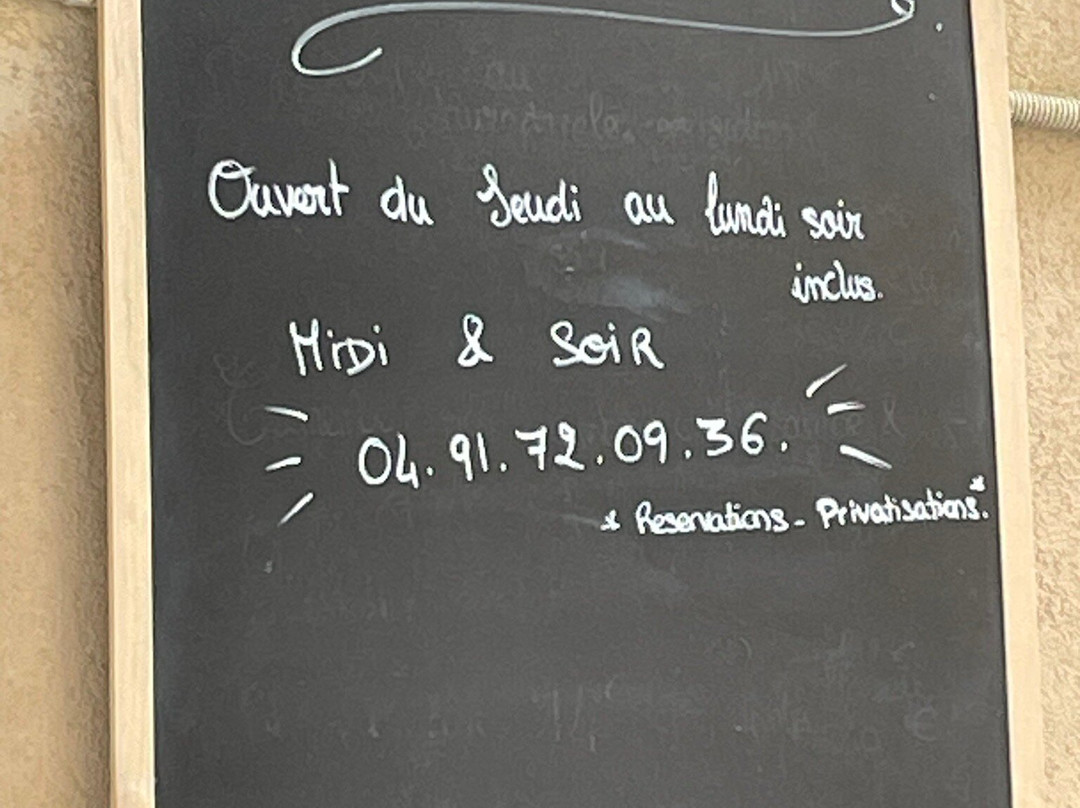 Ouvert du Jeudi au lundi soir
inclus.
MiDi & SoiR
04.91.72.09.36.
* Reservations - Privatisations.*